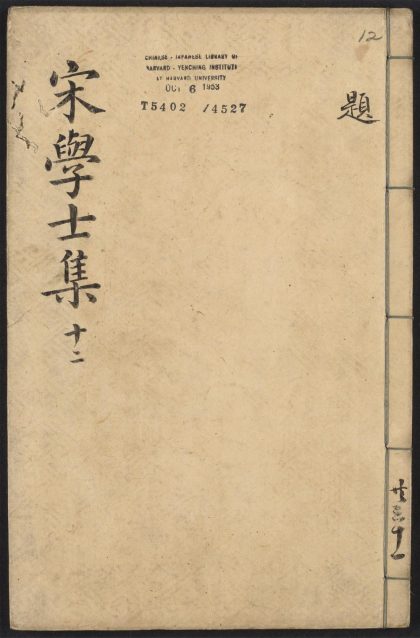 12
題
CHINESE - JAPANESE LIBRARY OF
HARVARD - YENCHING INSTITUTE
AT HARVARD UNIVERSITY
OCT 6 1953
T5402 /4527
宋學士集 十二